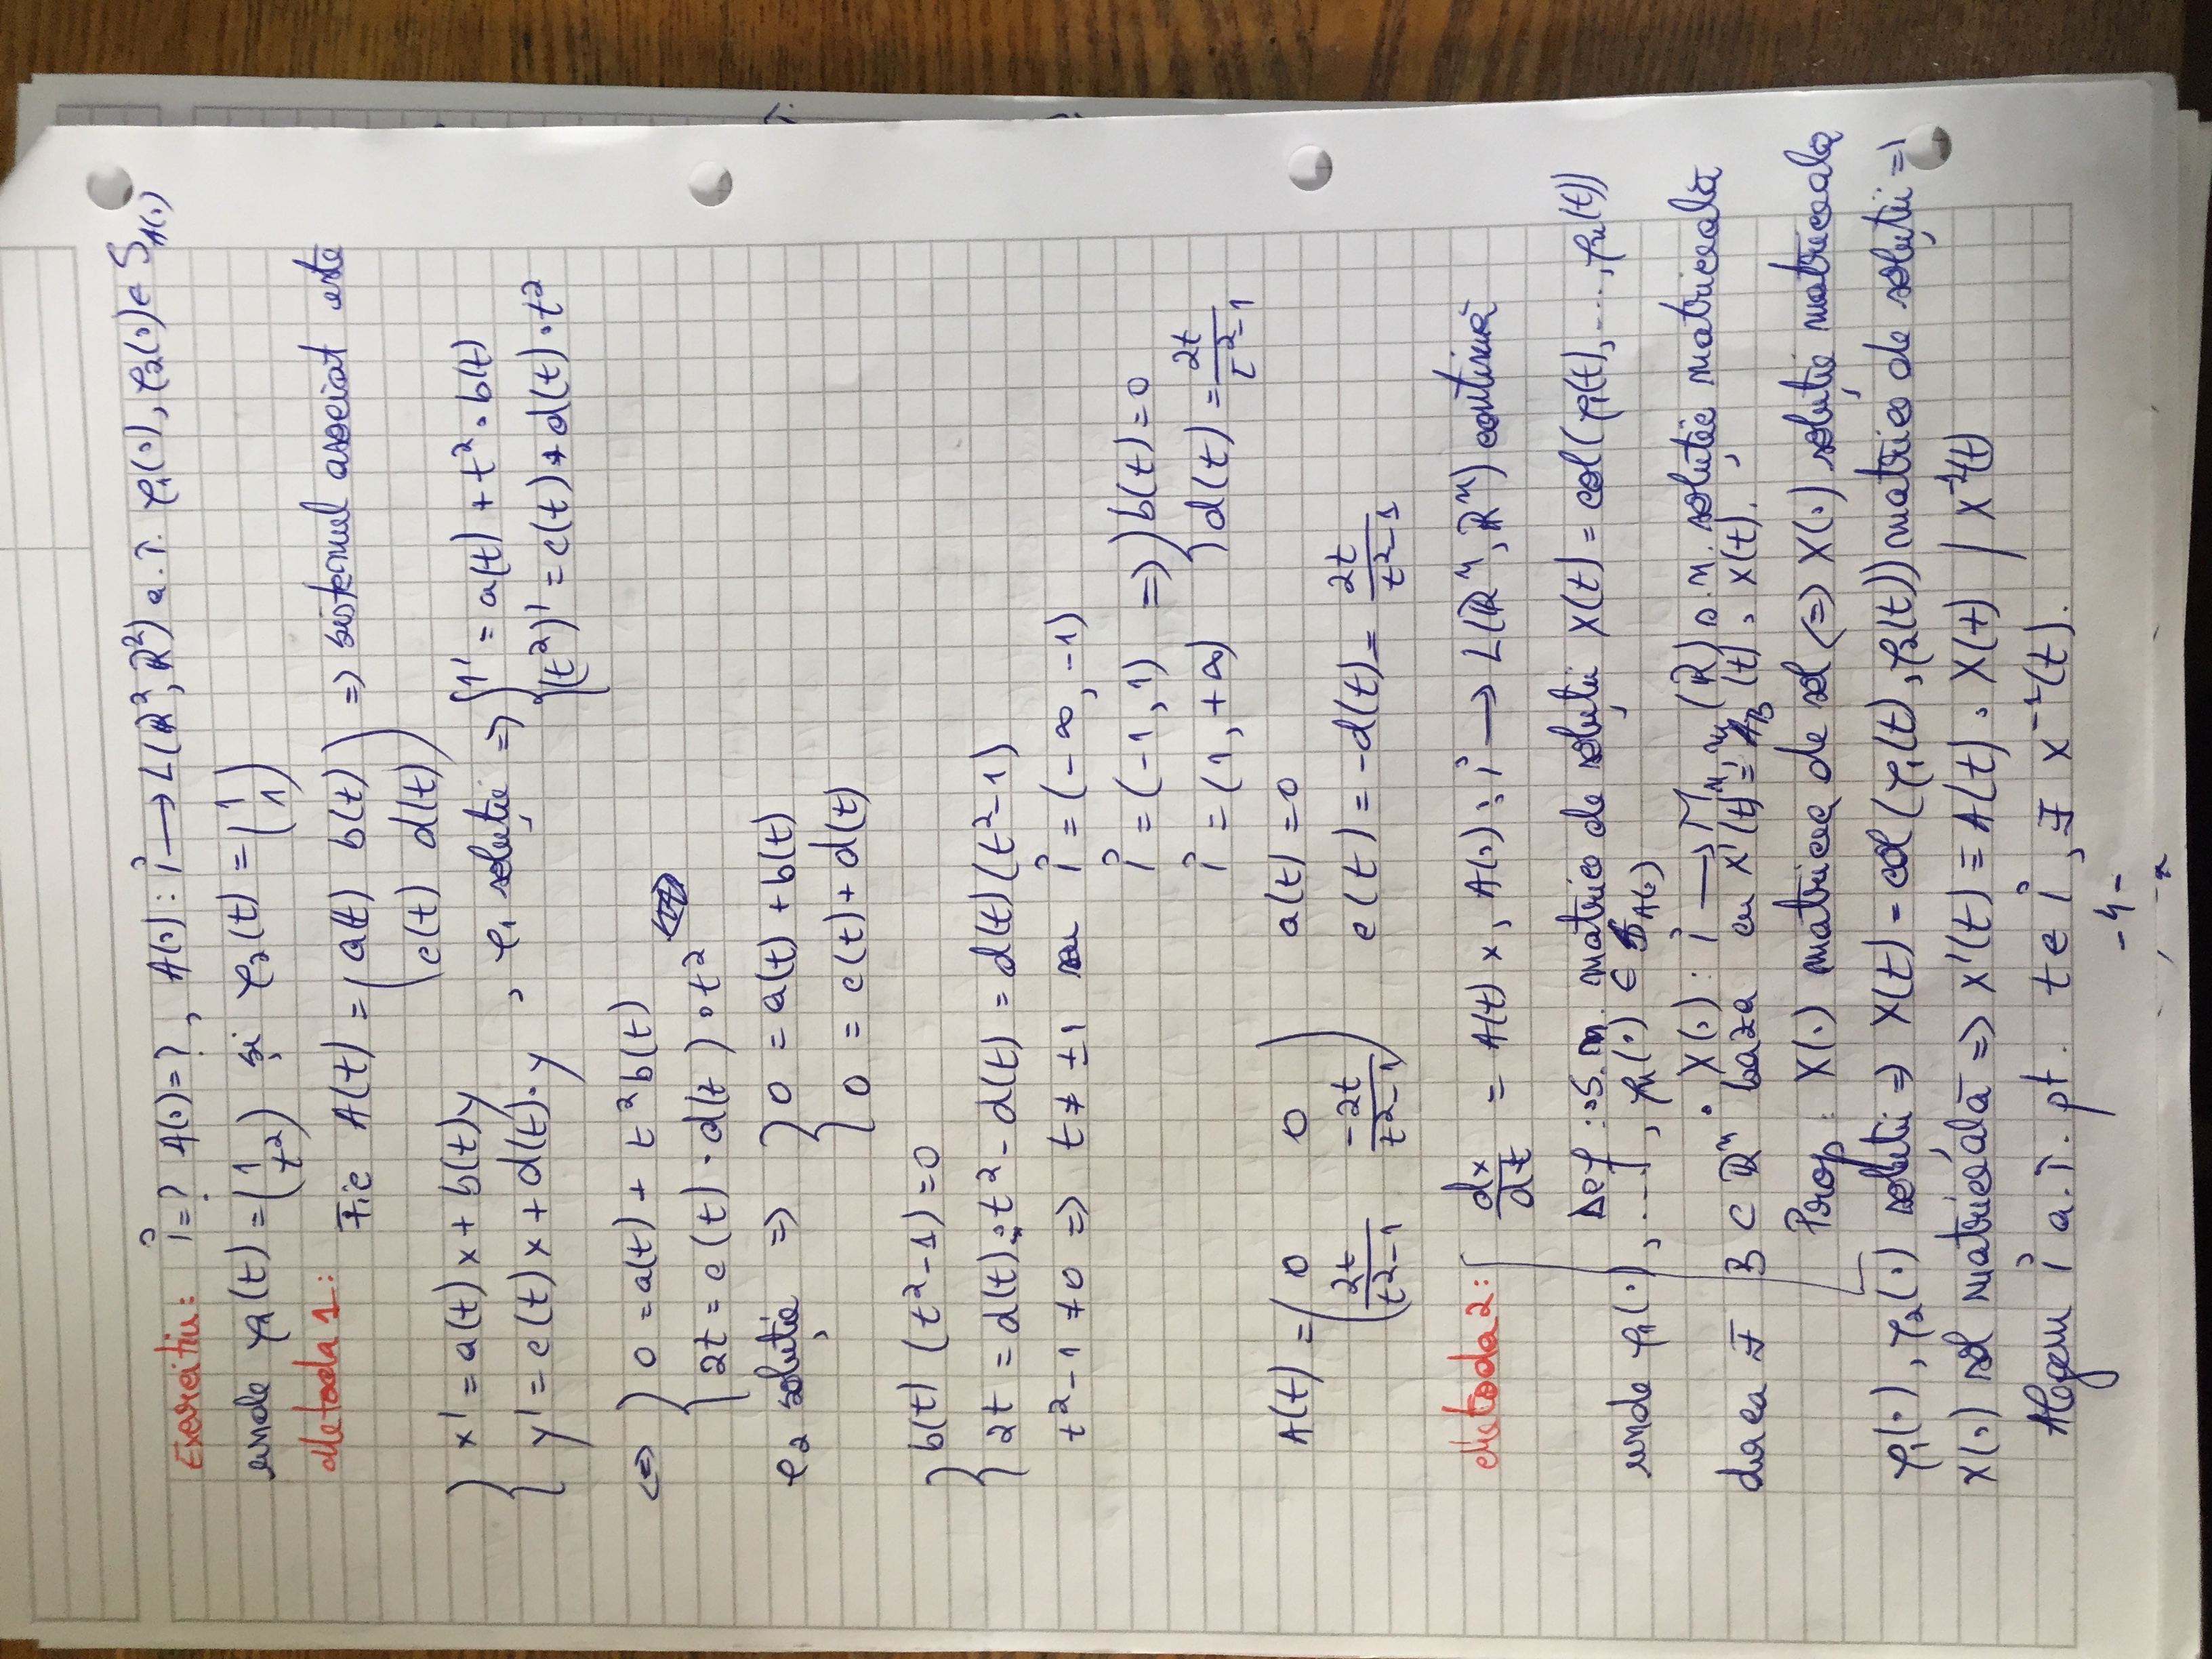 Exercitiu: I=? A(·)=?, A(·): I → L(R², R²) a.î. φ₁(·), φ₂(·) ∈ S_A(·)
unde φ₁(t) = (1 t²) și φ₂(t) = (1 1)
Metoda 1:
Fie A(t) = (a(t) b(t) c(t) d(t)) => sistemul asociat este
{ x' = a(t)x + b(t)y
y' = c(t)x + d(t)·y , φ₁ soluție => { 1' = a(t) + t²·b(t)
(t²)' = c(t) + d(t)·t²
<=> { 0 = a(t) + t²b(t)
2t = c(t) · d(t)·t²
φ₂ soluție => { 0 = a(t) + b(t)
0 = c(t) + d(t)
{ b(t) (t²-1) = 0
2t = d(t)·t² - d(t) = d(t)(t²-1)
t²-1 ≠ 0 => t ≠ ±1 I = (-∞, -1)
I = (-1, 1) => { b(t) = 0
I = (1, +∞) d(t) = 2t/(t²-1)
A(t) = (0 0 a(t) = 0
2t/(t²-1) -2t/(t²-1)) c(t) = -d(t) = 2t/(t²-1)
Metoda 2: dx/dt = A(t)x, A(·): I → L(Rⁿ, Rⁿ) continuă
Def: · S.n. matrice de soluții X(t) = col(φ₁(t), ..., φₙ(t))
unde φ₁(·), ..., φₙ(·) ∈ S_A(·)
· X(·): I → Mₙ,ₙ(R) s.n. soluție matriceală
daca ∃ B ⊂ Rⁿ baza cu X'(t) = A_B(t) · X(t).
Prop: X(·) matricea de sol <=> X(·) soluție matriceala
φ₁(·), φ₂(·) soluții => X(t) = col(φ₁(t), φ₂(t)) matrice de soluții =>
X(·) sol matriceală => X'(t) ≡ A(t) · X(t) / X⁻¹(t)
Alegem I a.î. pt. t ∈ I, ∃ X⁻¹(t).
-4-